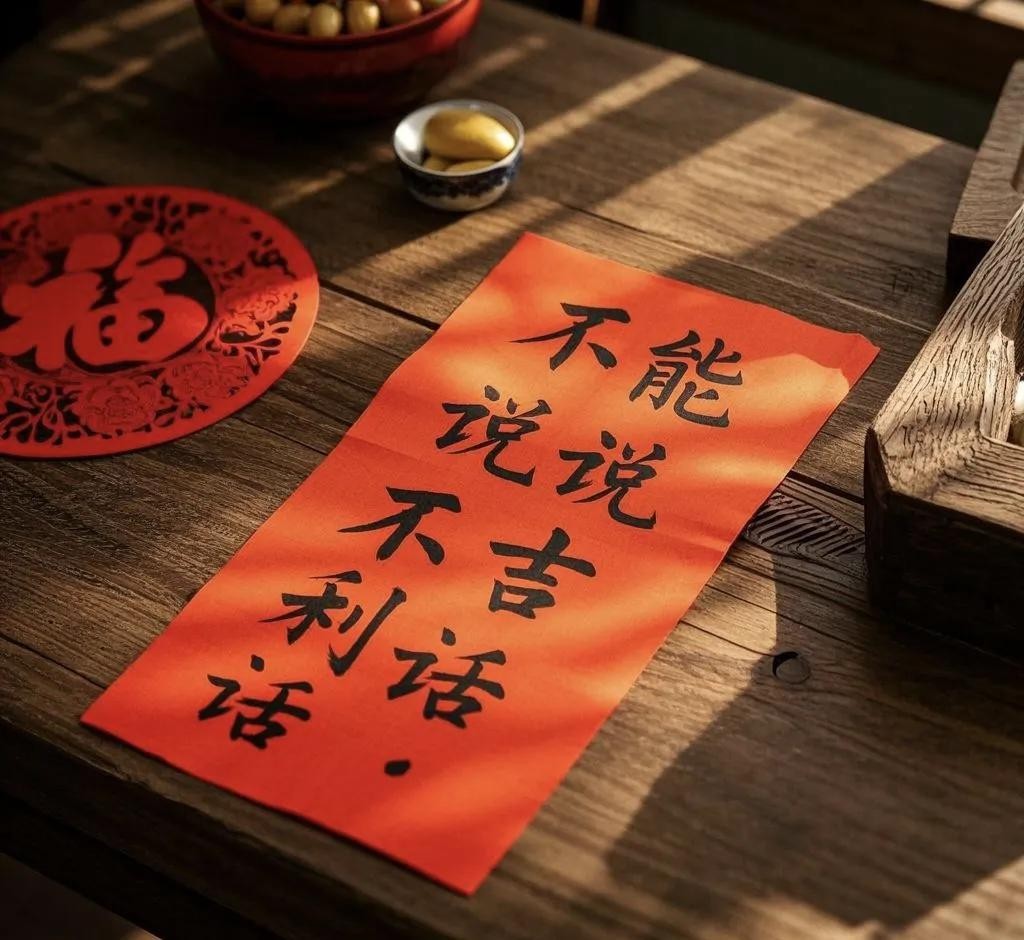 能说吉话·
不说不利话
福